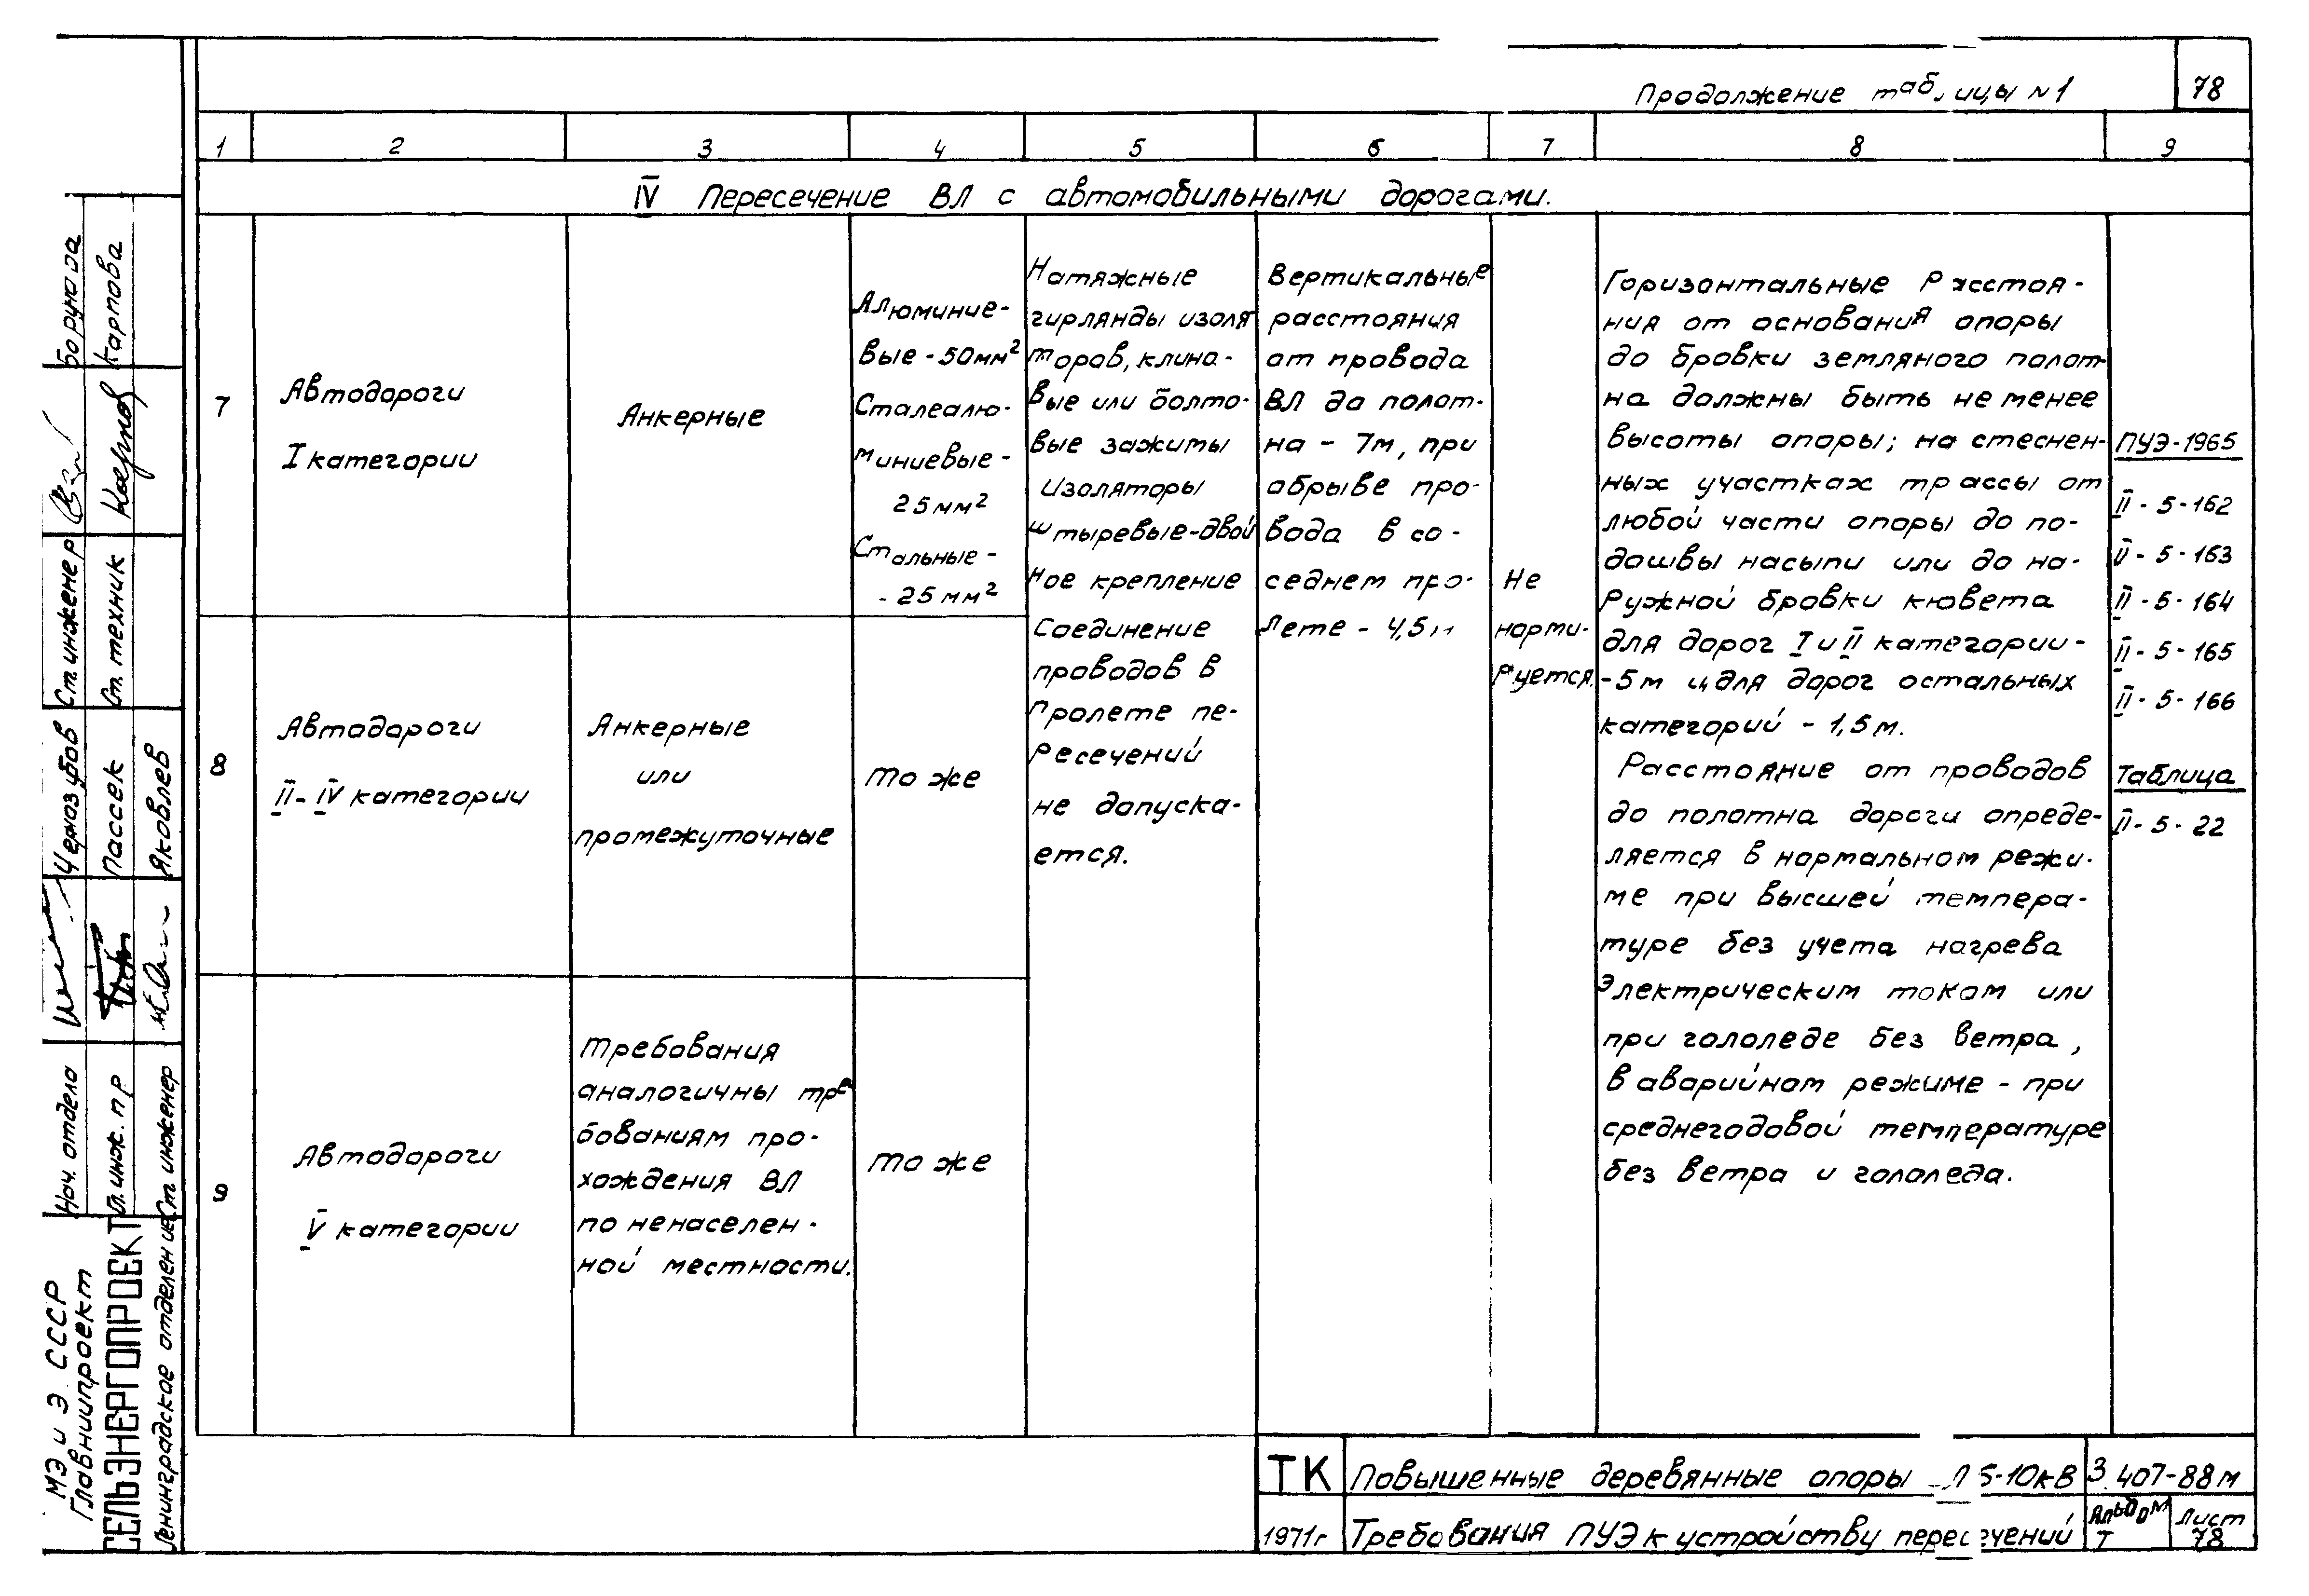 Продолжение таблицы №1
78
1 2 3 4 5 6 7 8 9
IV Пересечение ВЛ с автомобильными дорогами.
7
Автодороги
I категории
Анкерные
Алюминие-
вые - 50мм²
Сталеалю-
миниевые -
25мм²
Стальные -
- 25мм²
Натяжные
гирлянды изоля
торов, клино-
вые или болто-
вые зажимы
Изоляторы
штыревые-двой
ное крепление
Соединение
проводов в
пролете пе-
ресечений
не допуска-
ется.
Вертикальные
расстояния
от провода
ВЛ до полот-
на - 7м, при
обрыве про-
вода в со-
седнем про-
лете - 4,5м
Не
норми-
руется.
Горизонтальные расстоя-
ния от основания опоры
до бровки земляного полот-
на должны быть не менее
высоты опоры; на стеснен-
ных участках трассы от
любой части опоры до по-
дошвы насыпи или до на-
ружной бровки кювета
для дорог I и II категории -
- 5м и для дорог остальных
категорий - 1,5м.
Расстояние от проводов
до полотна дороги опреде-
ляется в нормальном режи-
ме при высшей темпера-
туре без учета нагрева
электрическим током или
при гололеде без ветра,
в аварийном режиме - при
среднегодовой температуре
без ветра и гололеда.
ПУЭ-1965
II - 5 - 162
II - 5 - 163
II - 5 - 164
II - 5 - 165
II - 5 - 166
Таблица
II - 5 - 22
8
Автодороги
II - IV категории
Анкерные
или
промежуточные
то же
9
Автодороги
V категории
Требования
аналогичны тре
бованиям про-
хождения ВЛ
по ненаселен-
ной местности.
то же
ТК
Повышенные деревянные опоры
10кВ
3.407-88м
1971г
Требования ПУЭ к устройству пересечений
Альбом
I
Лист
78
МЭ и Э СССР
Главниипроект
СЕЛЬЭНЕРГОПРОЕКТ
Ленинградское отделение
Нач. отдела
Гл. инж. пр
Ст. инженер
Пассек
Яковлев
Ст. инженер
Ст. техник
Карпова